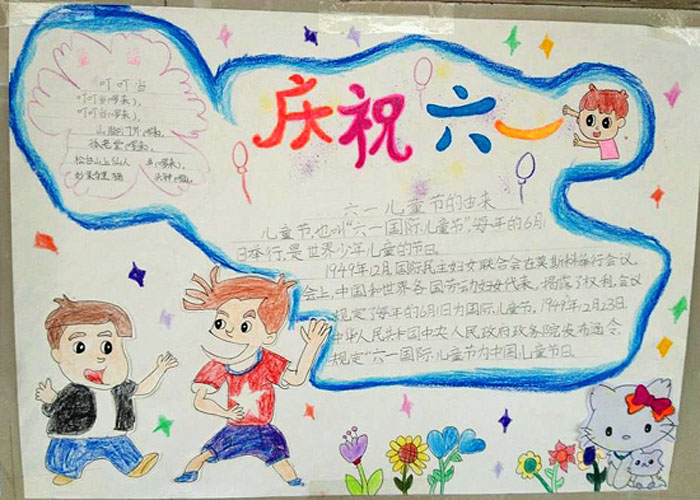 庆祝六一
童谣
叮叮当
叮叮当(啰来),
叮叮当(啰来),
山脚门
六一儿童节的由来
儿童节,也叫"六一国际儿童节",每年的6月1
日举行,是世界少年儿童的节日。
1949年12月国际民主妇女联合会在莫斯科举行会议。
会上,中国和世界各国劳动妇女代表,揭露了权利,会议
规定了每年的6月1日为国际儿童节。1949年2月23日
中华人民共和国中央人民政府政务院发布通令,
规定"六一国际儿童节为中国儿童节日。